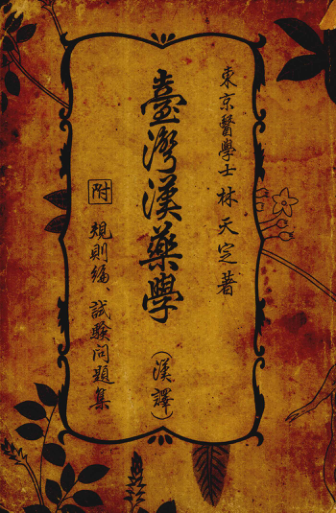 東京醫學士 林天定著
臺灣漢藥學
(漢譯)
附 規則編、試驗問題集